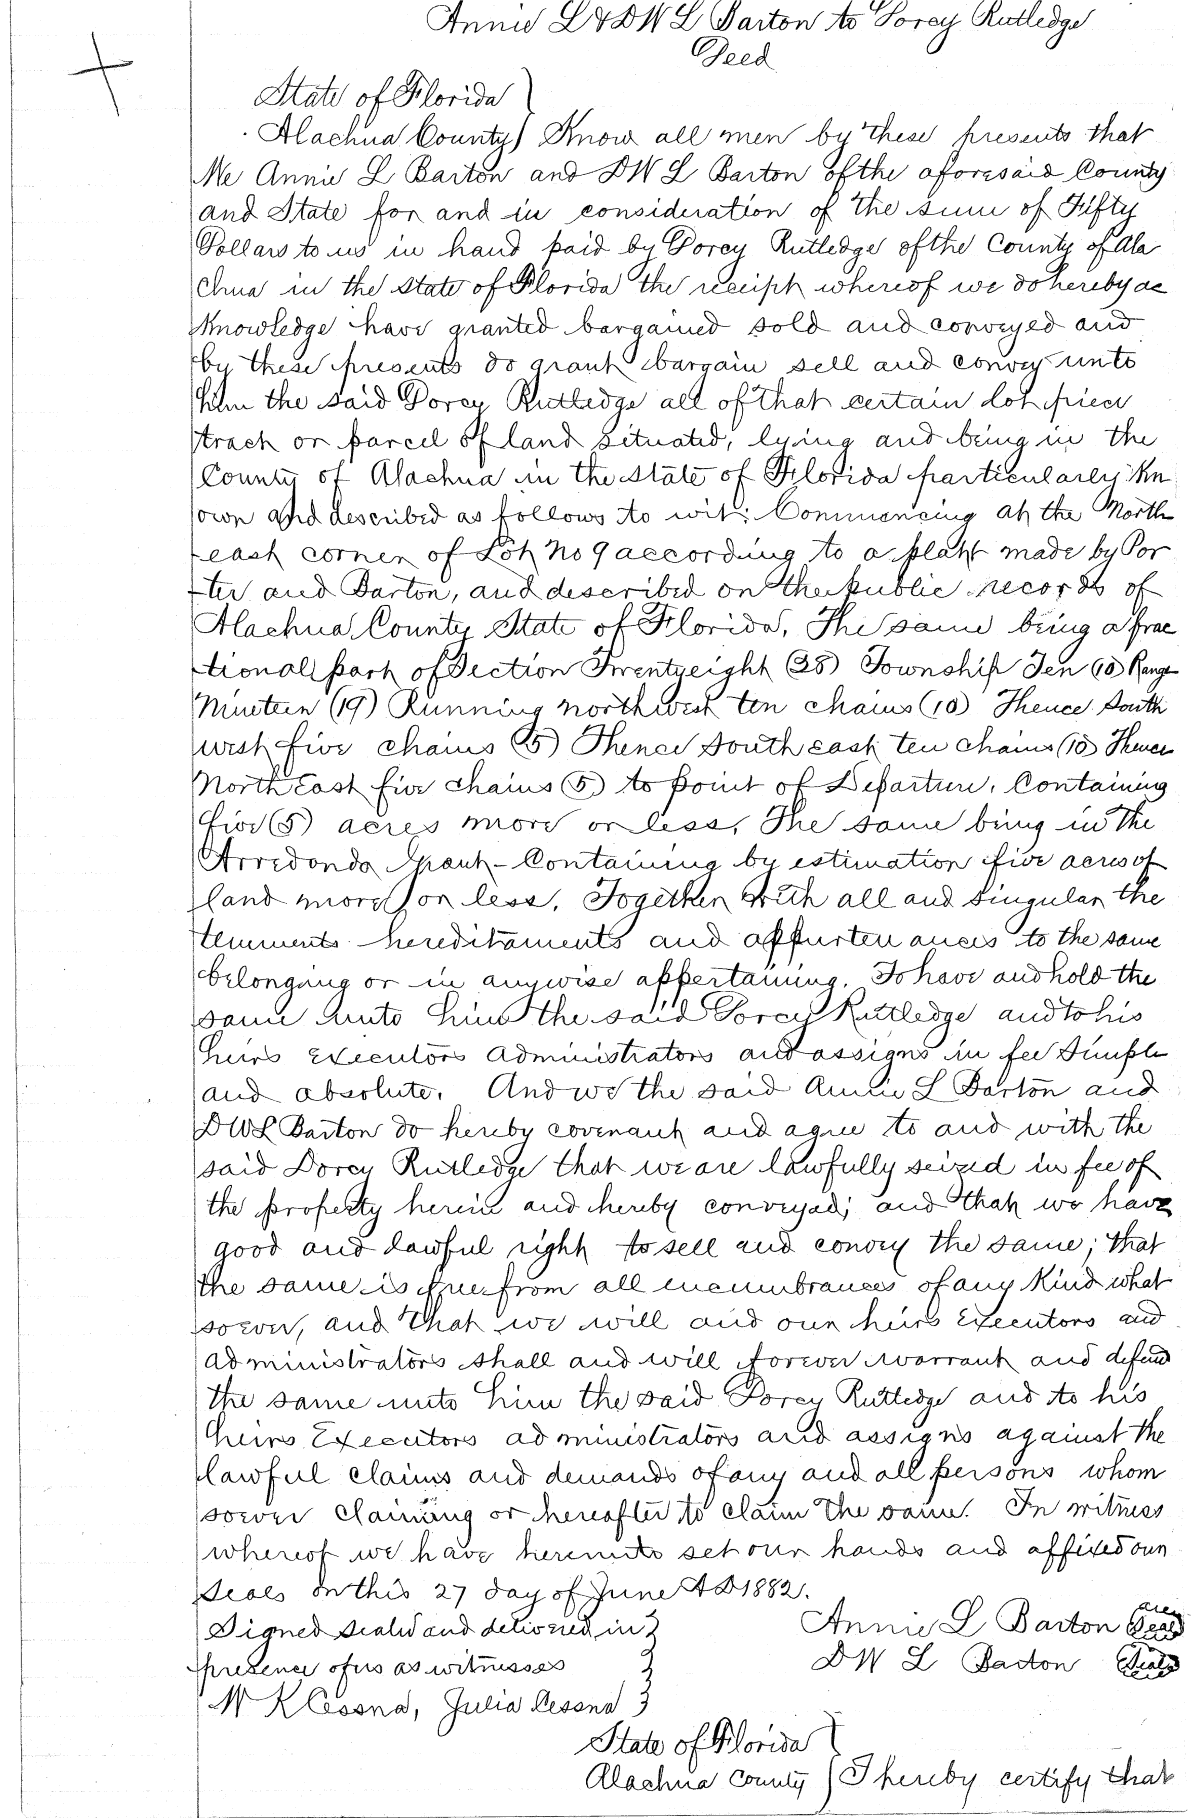 Annie L & DW L Barton to Dorcy Rutledge
Deed
State of Florida }
Alachua County } Know all men by these presents that
We Annie L Barton and DW L Barton of the aforesaid County
and State for and in consideration of the sum of Fifty
Dollars to us in hand paid by Dorcy Rutledge of the County of Ala
chua in the State of Florida the receipt whereof we do hereby ac
knowledge have granted bargained sold and conveyed and
by these presents do grant bargain sell and convey unto
him the said Dorcy Rutledge all of that certain lot piece
tract or parcel of land situated, lying and being in the
County of Alachua in the State of Florida particularly Kn
own and described as follows to wit: Commencing at the North
east corner of Lot No 9 according to a platt made by Por
ter and Barton, and described on the public records of
Alachua County State of Florida, The same being a frac
tional part of Section Twentyeight (28) Township Ten (10) Range
Nineteen (19) Running northwest ten chains (10) Thence South
west five chains (5) Thence South east ten chains (10) Thence
North East five chains (5) to point of Departure, Containing
five (5) acres more or less, The same being in the
Arredondo Grant - Containing by estimation five acres of
land more or less, Together with all and singular the
tenements hereditaments and appurtenances to the same
belonging or in anywise appertaining. To have and hold the
same unto him the said Dorcy Rutledge and to his
heirs Executors administrators and assigns in fee Simple
and absolute. And we the said Annie L Barton and
DWL Barton do hereby covenant and agree to and with the
said Dorcy Rutledge that we are lawfully seized in fee of
the property herein and hereby conveyed; and that we have
good and lawful right to sell and convey the same; that
the same is free from all incumbrances of any Kind what
soever, and that we will and our heirs Executors and
administrators shall and will forever warrant and defend
the same unto him the said Dorcy Rutledge and to his
heirs Executors administrators and assigns against the
lawful claims and demands of any and all persons whom
soever claiming or hereafter to claim the same. In witness
whereof we have hereunto set our hands and affixed our
seals on this 27 day of June AD 1882.
Signed sealed and delivered in } Annie L Barton Seal
presence of us as witnesses } DW L Barton Seal
W K Cessna, Julia Cessna }
State of Florida }
Alachua County } I hereby certify that